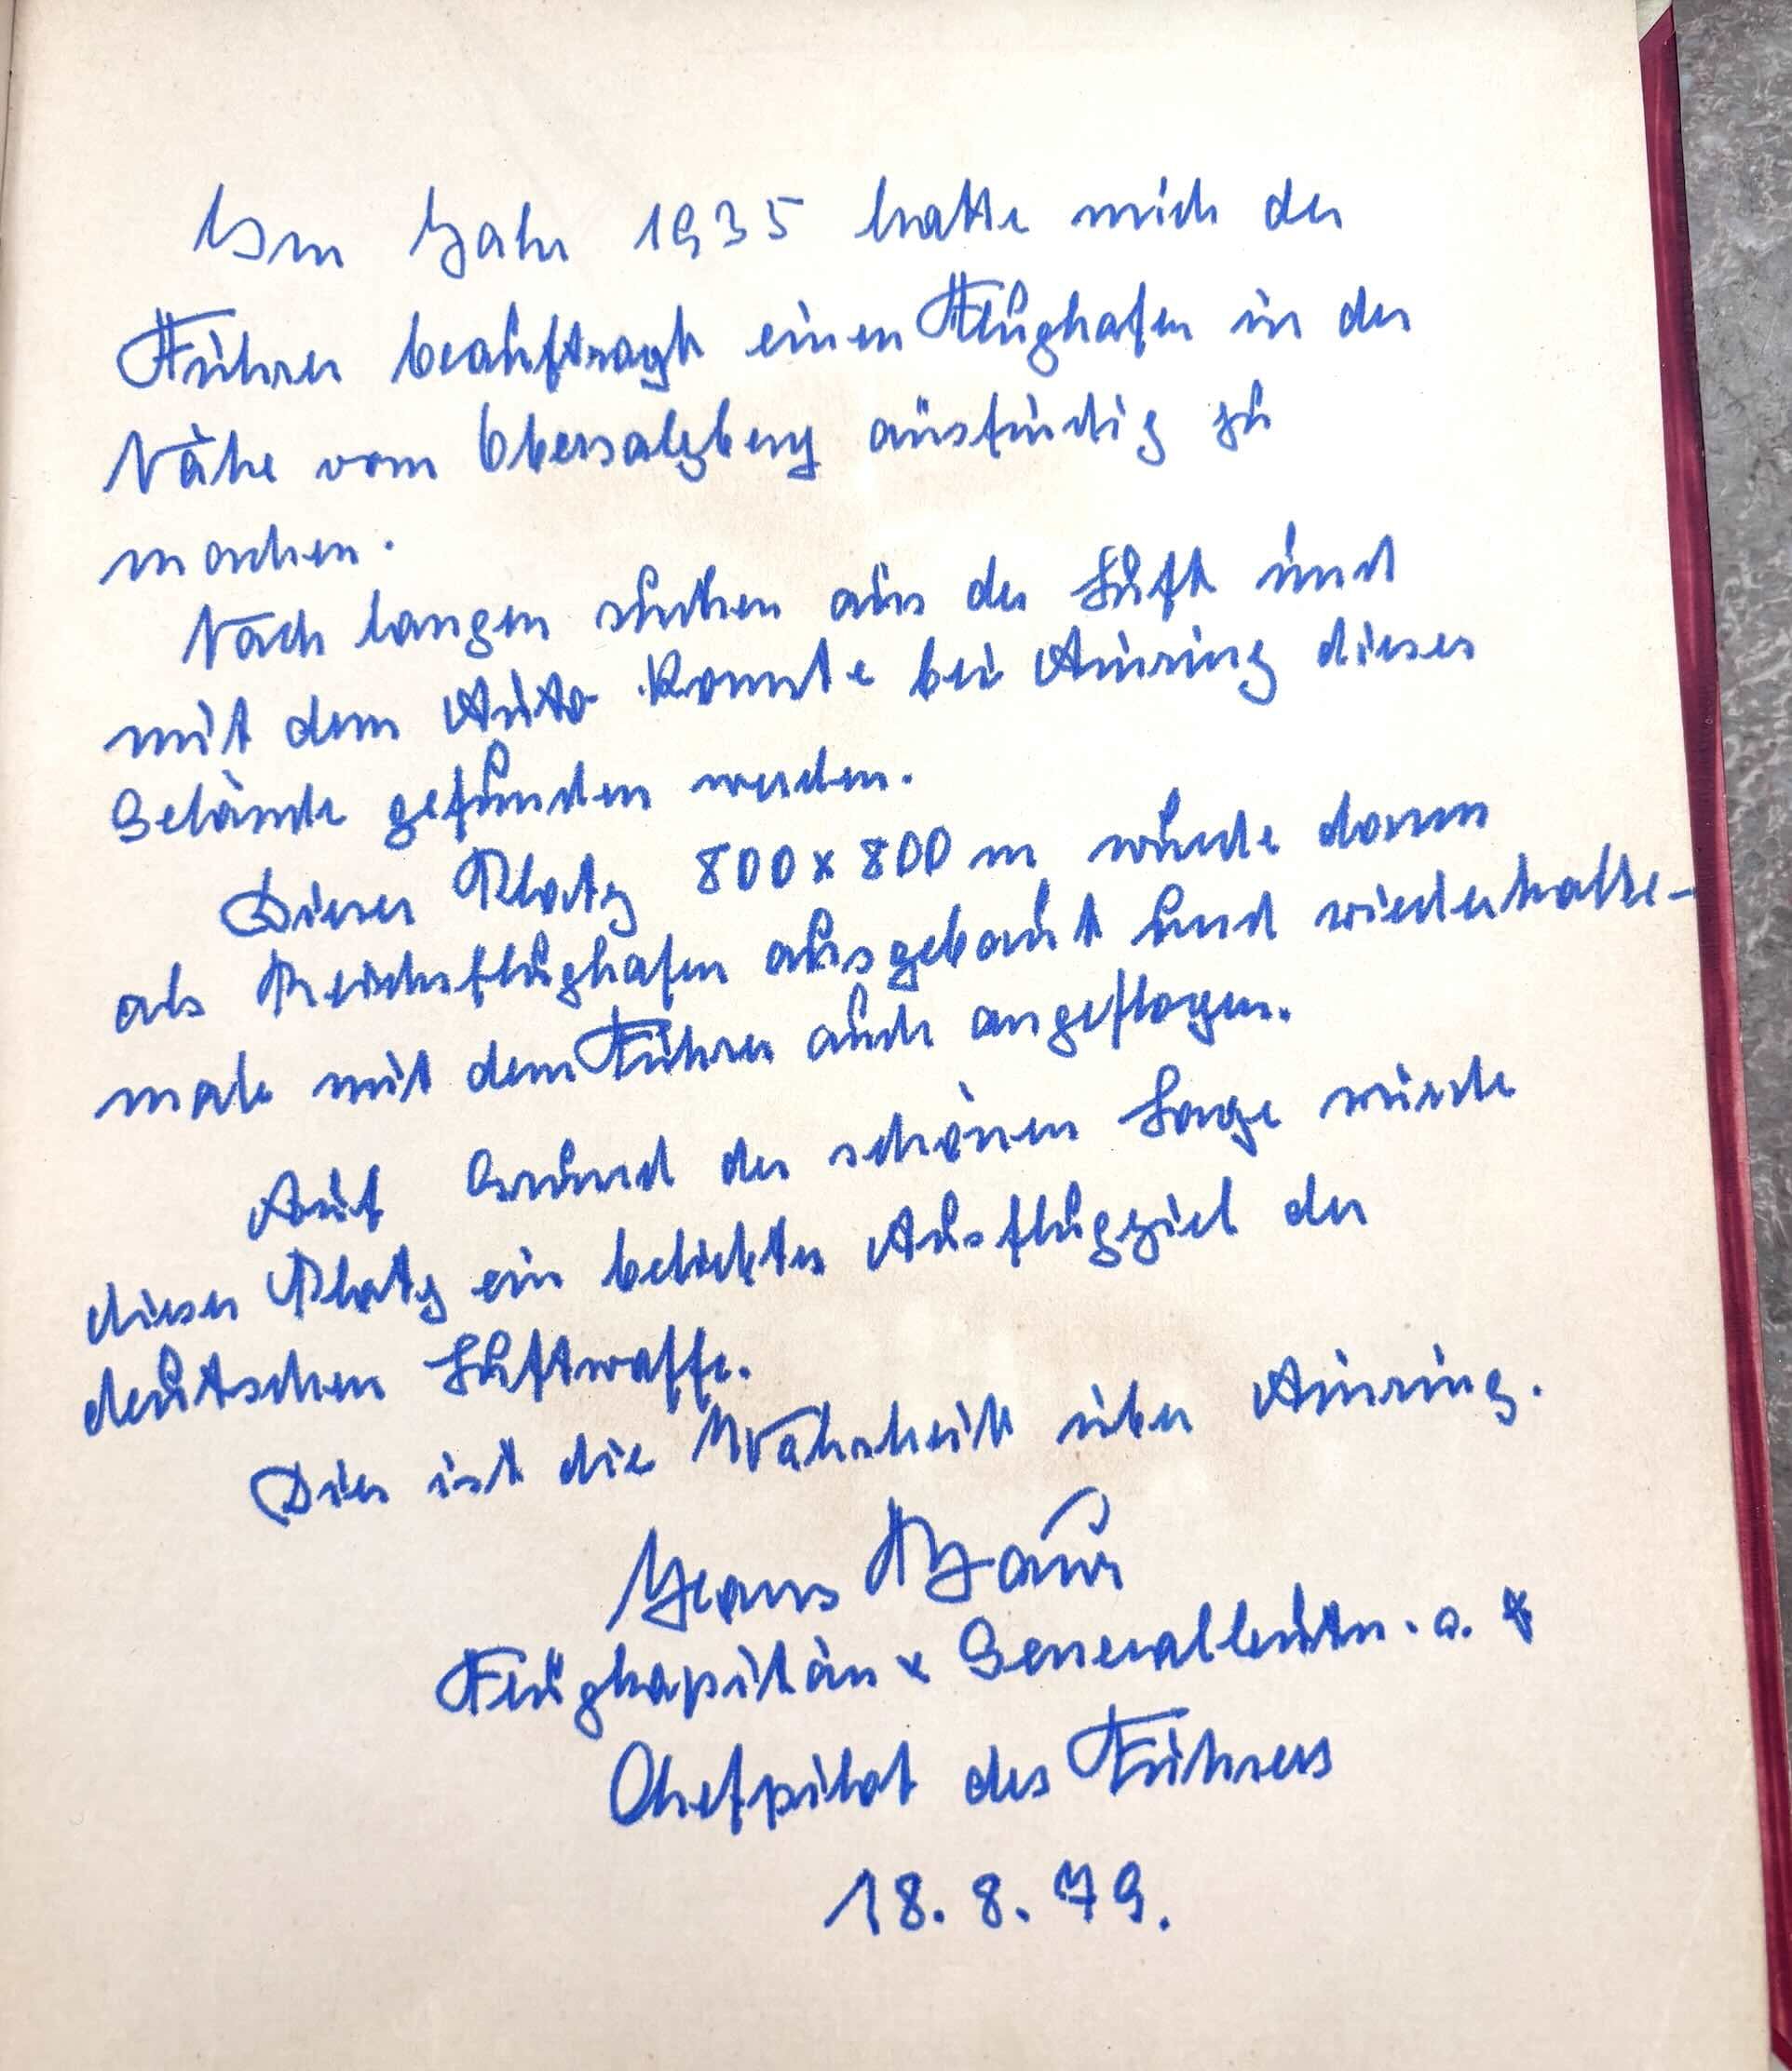 Im Jahr 1935 hatte mich der
Führer beauftragt einen Flughafen in der
Nähe vom Obersalzberg ausfindig zu
machen.
Nach langen suchen aus der Luft und
mit dem Auto konnte bei Ainring dieses
Gelände gefunden werden.
Dieser Platz 800 x 800 m wurde dann
als Reichsflughafen ausgebaut und wiederholte-
male mit dem Führer auch angeflogen.
Auf Grund der schönen Lage wurde
dieser Platz ein beliebtes Ausflugziel der
deutschen Luftwaffe.
Dies ist die Wahrheit über Ainring.
Hans Baur
Flugkapitän x Generalleutn. a.
Chefpilot des Führers
18. 8. 79.